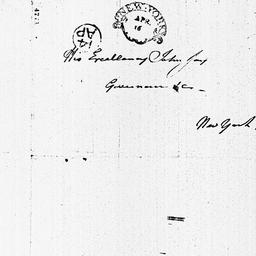 NEW-YORK
APR
16
14
AP
His Excellency John Jay
Governor &c -
New York